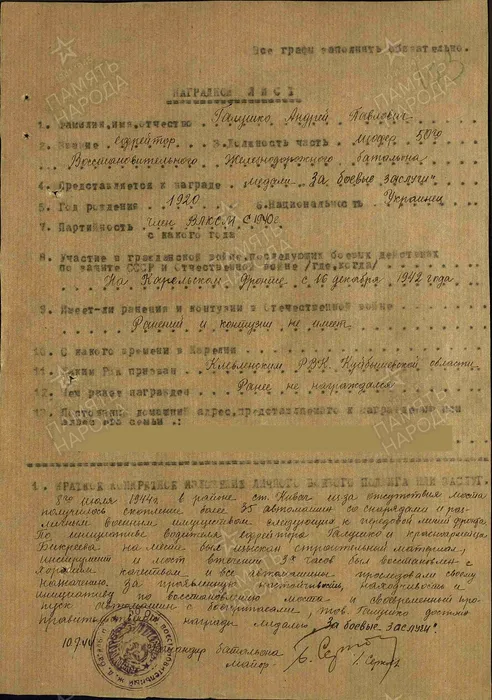 Все графы заполнять обязательно.
НАГРАДНОЙ ЛИСТ
1. Фамилия,имя,отчество Галушко Андрей Павлович
2. Звание Ефрейтор 3.Должность часть шофер 50го
Восстановительного Железнодорожного батальона
4. Представляется к награде медали "За боевые заслуги"
5. Год рождения 1920 6.Национальность Украинец
7. Партийность член ВЛКСМ с 1940г
с какого года
8. Участие в гражданской войне,последующих боевых действиях
по защите СССР и Отечественной войне /где,когда/
На Карельском Фронте с 16 декабря 1942 года
9. Имеет-ли ранения и контузии в Отечественной войне
Ранений и контузии не имеет
10. С какого времени в Карелии
11. Каким РВК призван РВК Куйбышевской области
12. Чем ранее награжден Ранее не награждался
13. Постоянный домашний адрес,представляемого к награждению или
адрес его семьи :
1. КРАТКОЕ КОНКРЕТНОЕ ИЗЛОЖЕНИЕ ЛИЧНОГО БОЕВОГО ПОДВИГА ИЛИ ЗАСЛУГ.
8го июля 1944г в районе ст. из за отсутствия моста
получилось скопление более 35 автомашин со снарядами и раз-
личным военным имуществом следующих к передовой линии фронта.
По инициативе водителя ефрейтора Галушко и красноармейца
на месте был изыскан строительный материал,
инструмент и мост в течении 3х часов был восстановлен с
хорошим качеством и все автомашины проследовали своему
назначению. За проявленную находчивость и
инициативу по восстановлению моста и своевременный про-
пуск автомашин с боеприпасами, тов. Галушко достоин
правительственной награды медали "За боевые заслуги".
10.7.44 Командир батальона
майор
ПАМЯТЬ НАРОДА